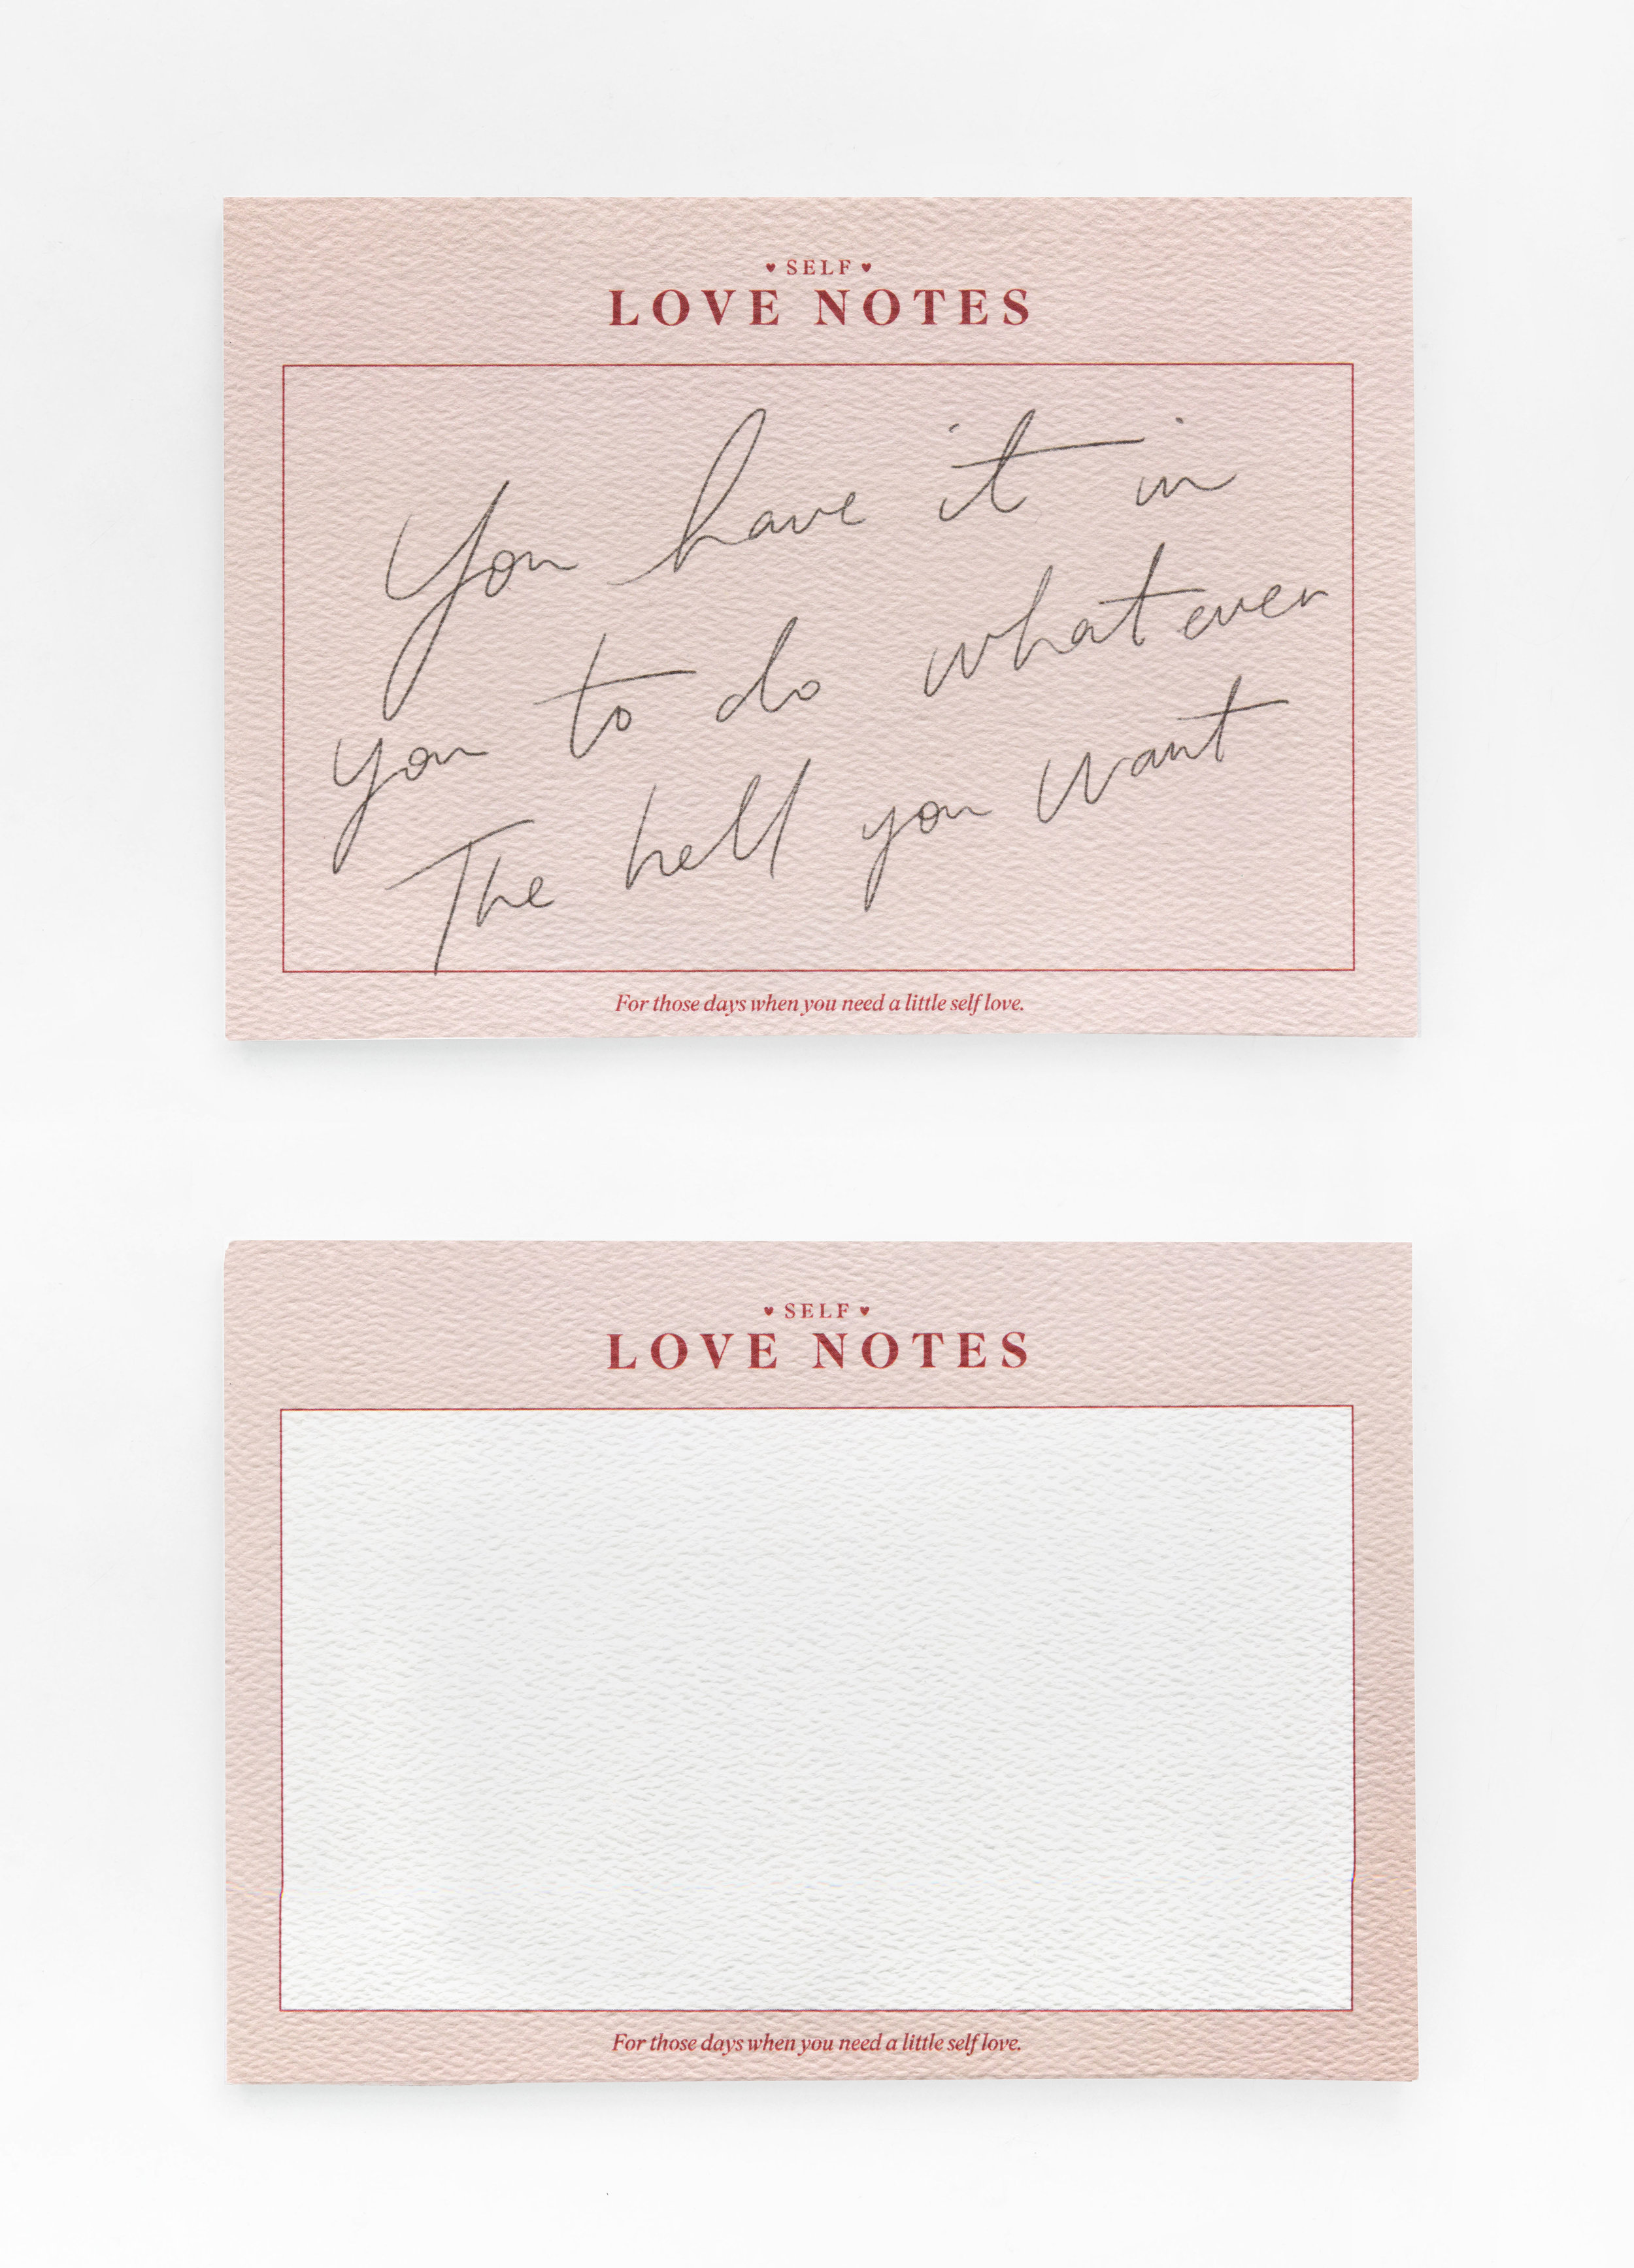 ♥ SELF ♥
LOVE NOTES
You have it in
you to do whatever
The hell you want
For those days when you need a little self love.
♥ SELF ♥
LOVE NOTES
For those days when you need a little self love.